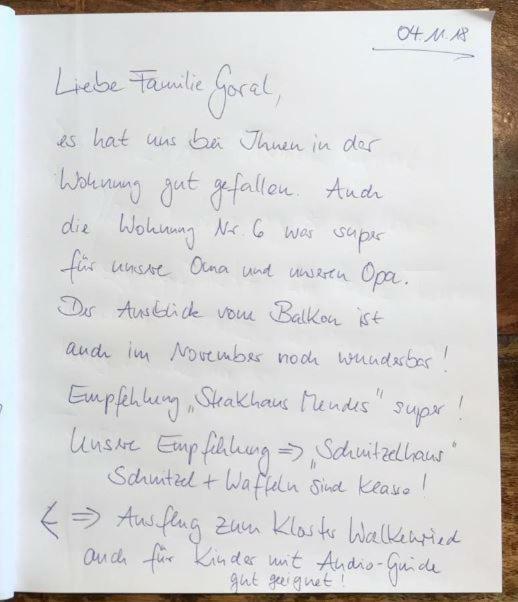 04.11.18
Liebe Familie Goral,
es hat uns bei Ihnen in der
Wohnung gut gefallen. Auch
die Wohnung Nr. 6 war super
für unsere Oma und unseren Opa.
Der Ausblick vom Balkon ist
auch im November noch wunderbar!
Empfehlung „Steakhaus Mendes" super!
Unsere Empfehlung ⇒ „Schnitzelhaus"
Schnitzel + Waffeln sind klasse!
< ⇒ Ausflug zum Kloster Walkenried
auch für Kinder mit Audio-Guide
gut geeignet!